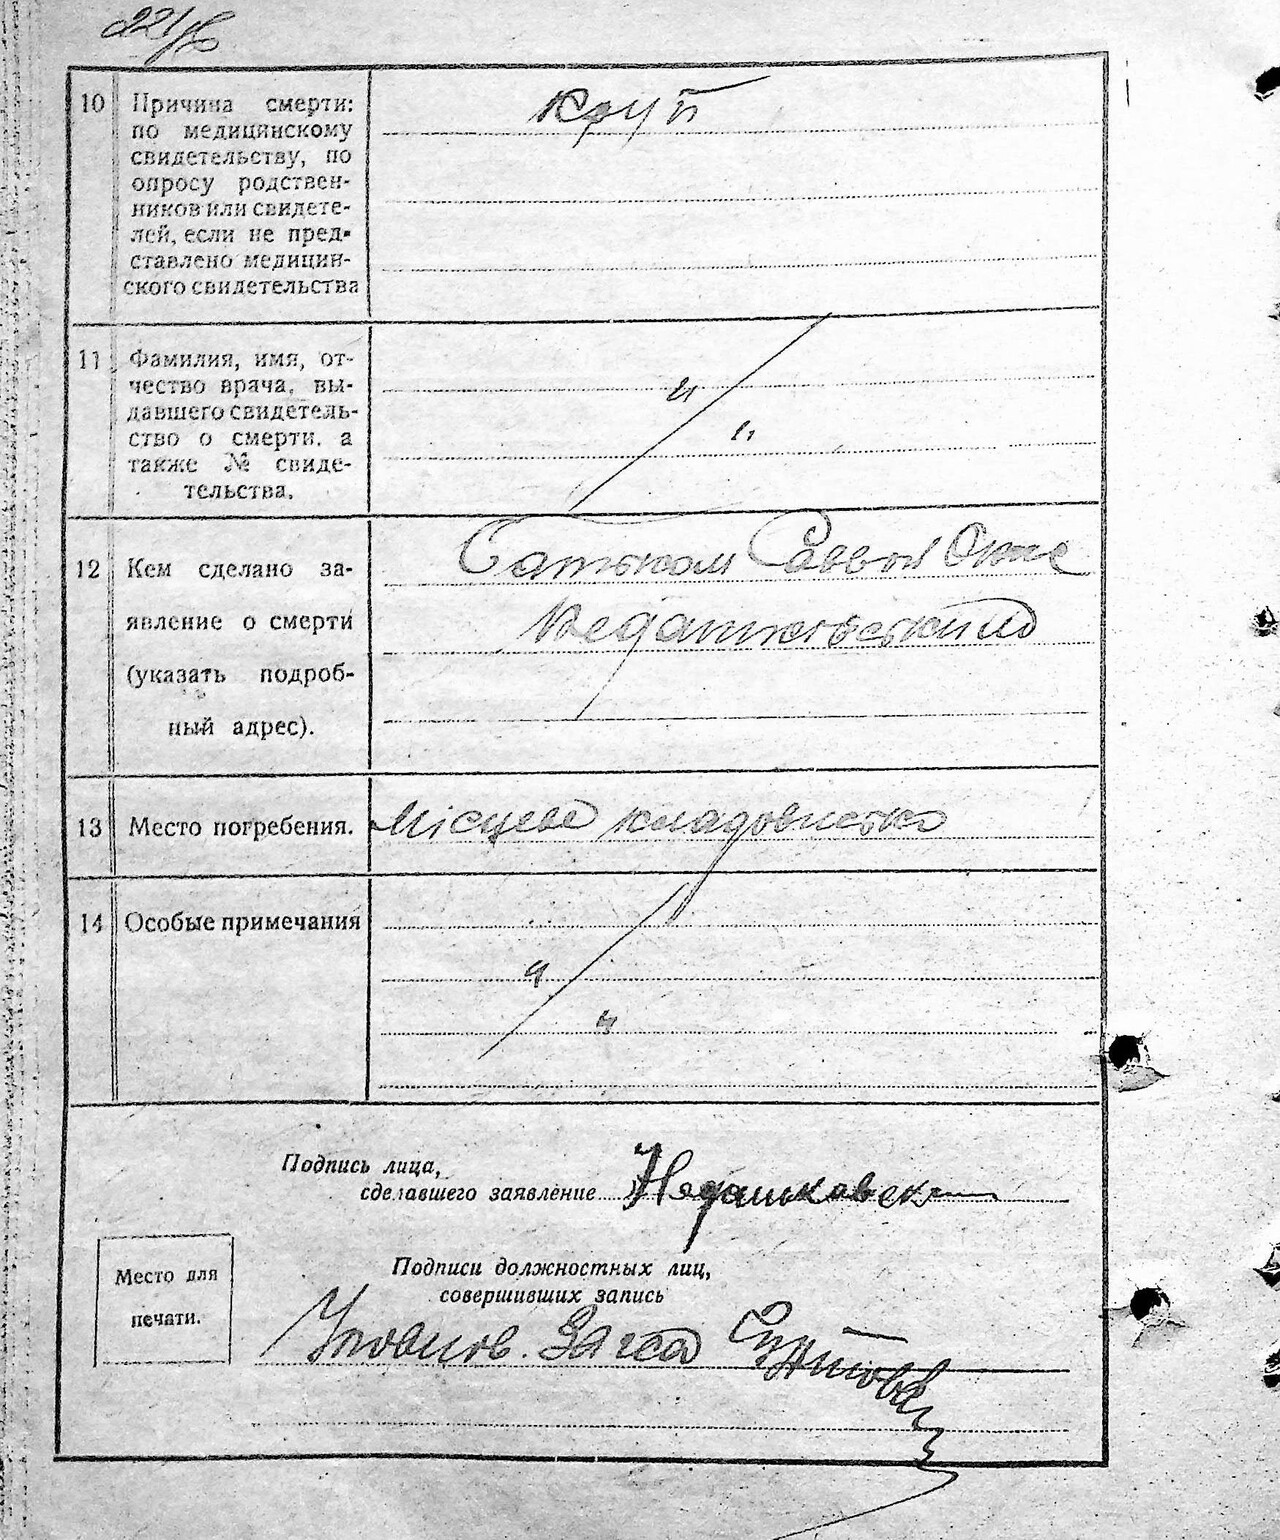 10 Причина смерти:
по медицинскому
свидетельству, по
опросу родствен-
ников или свидете-
лей, если не пред-
ставлено медицин-
ского свидетельства
Круп
11 Фамилия, имя, от-
чество врача, вы-
давшего свидетель-
ство о смерти, а
также № свиде-
тельства.
" "
12 Кем сделано за-
явление о смерти
(указать подроб-
ный адрес).
Батьком Саввой
13 Место погребения.
Місцеве кладовисько
14 Особые примечания
" "
Подпись лица,
сделавшего заявление Недашковск
Подписи должностных лиц,
совершивших запись
Место для
печати.
Уповнов. Загса